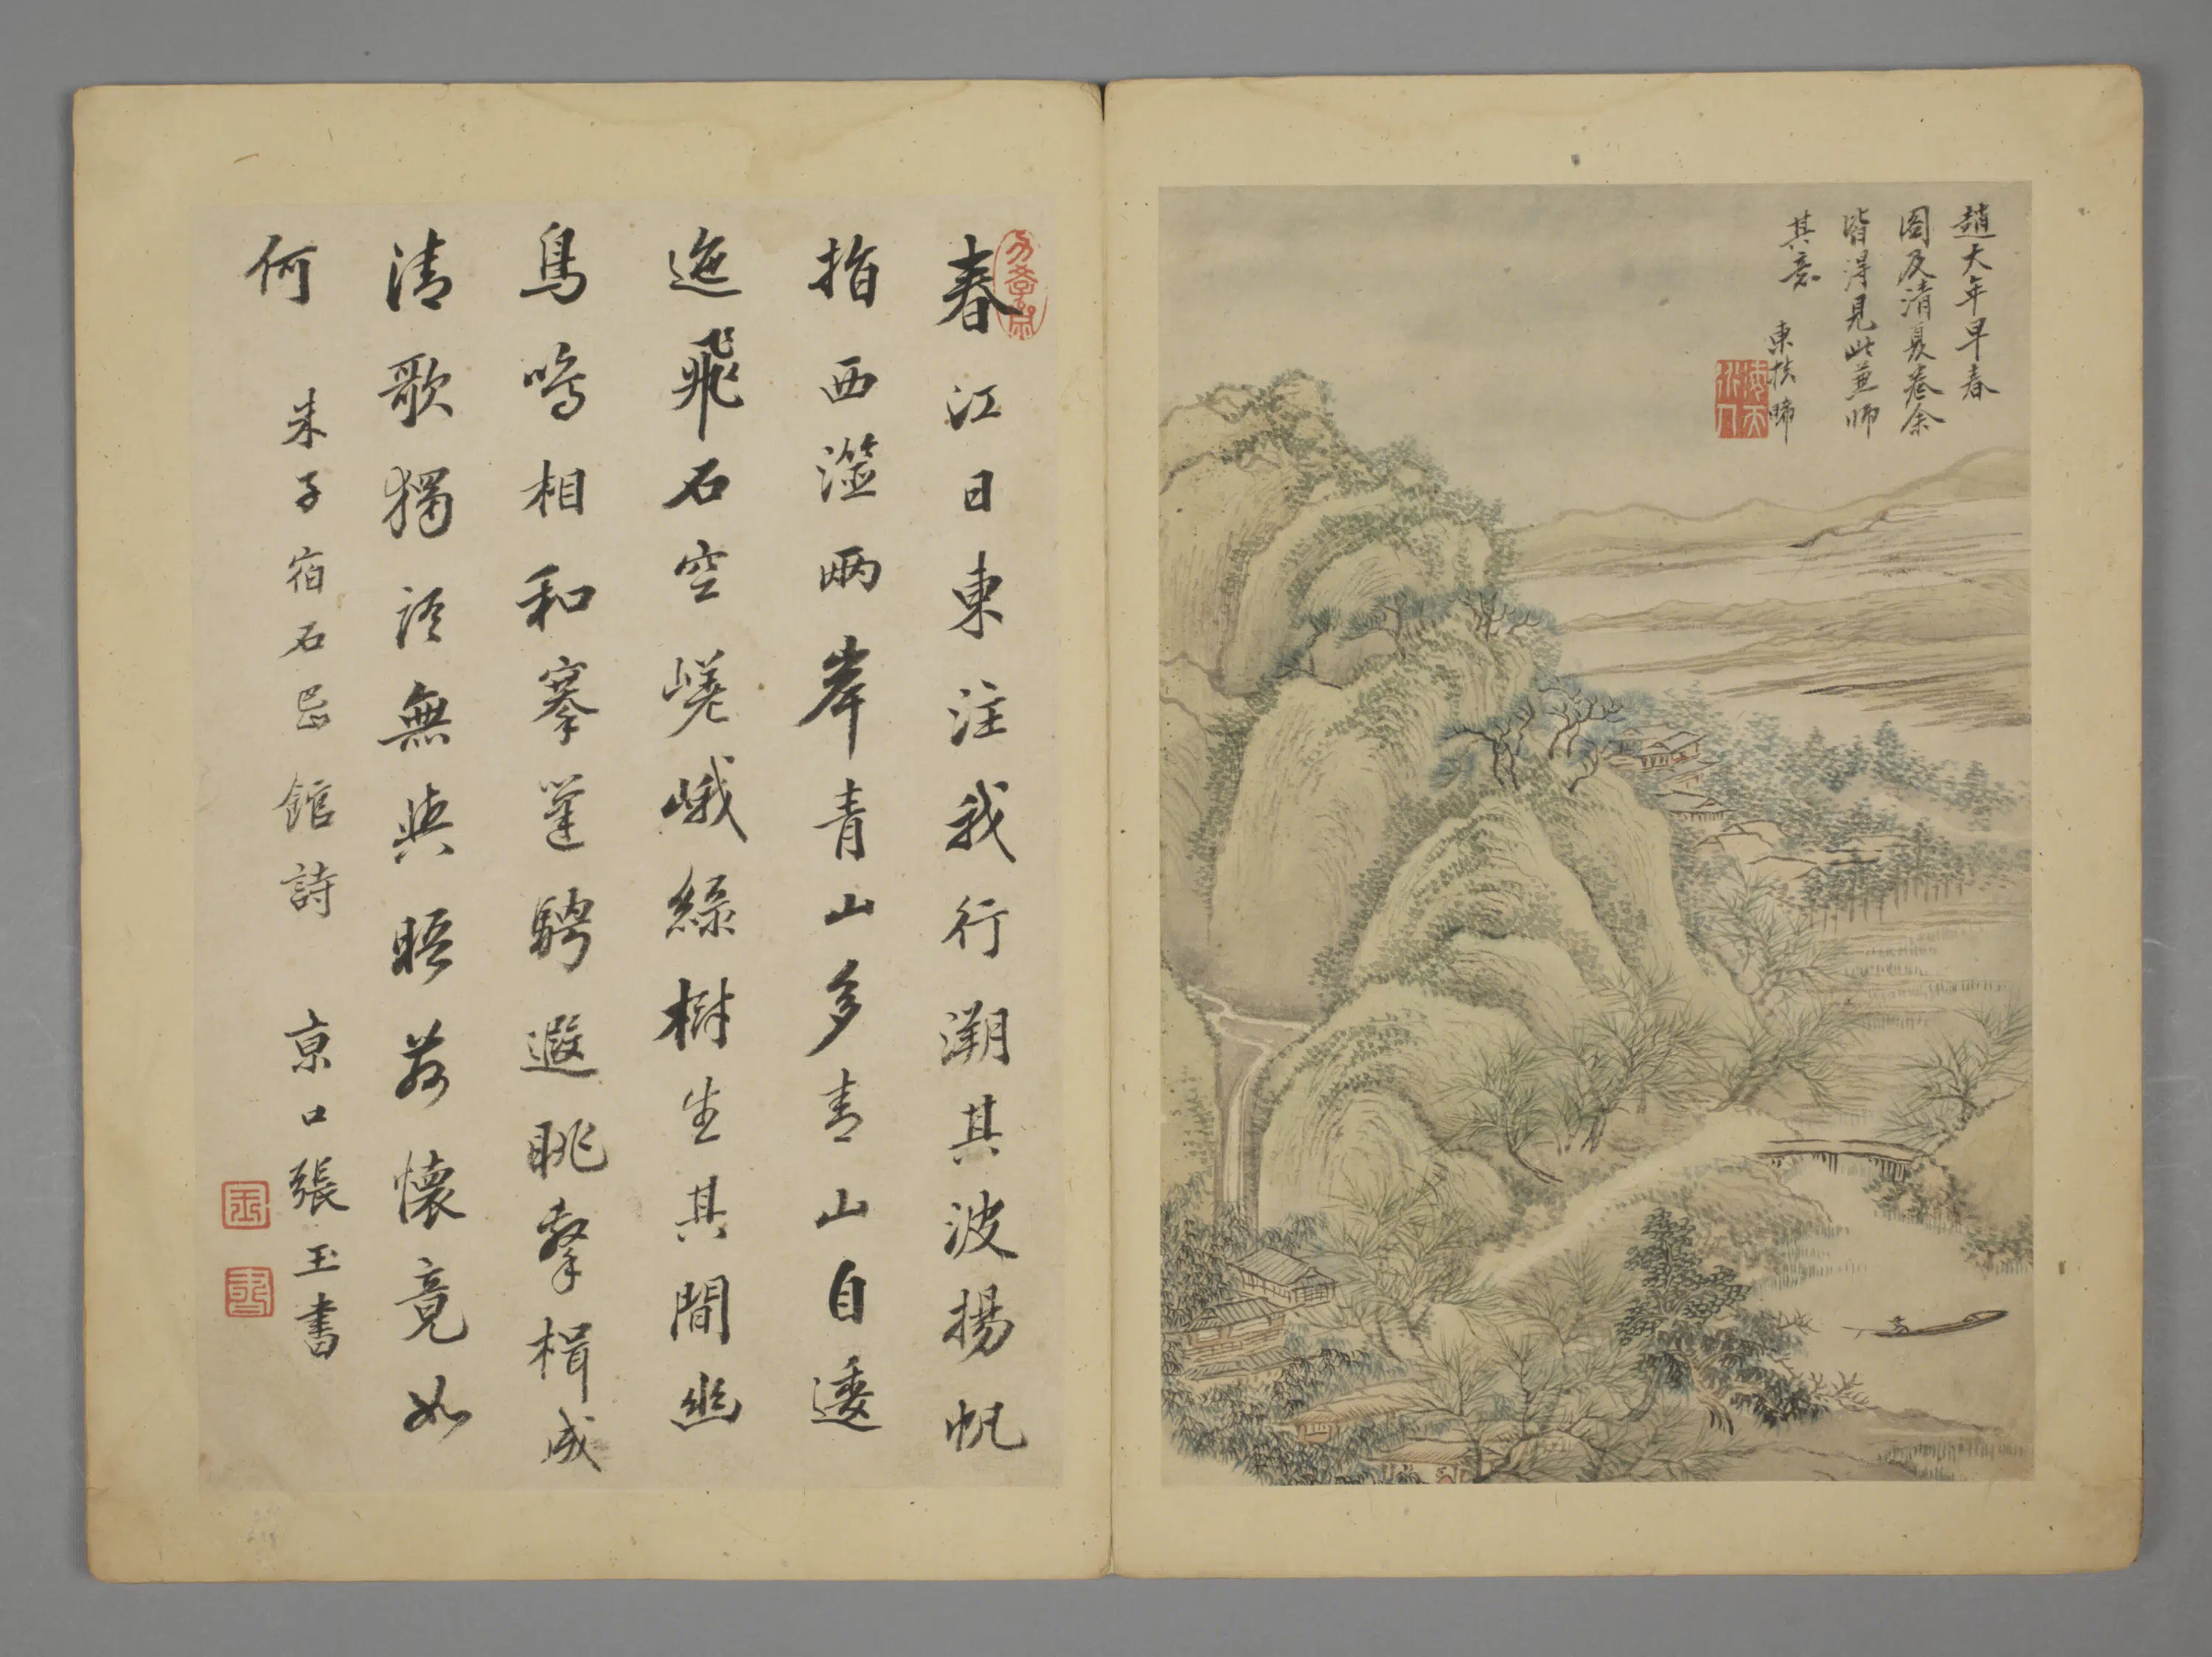 趙大年早春
圖及清夏卷余
皆得見此並師
其意
東扶晞
春江日東注我行溯其波揚帆
指西澨兩岸青山多青山自逶
迤飛石空嵯峨綠樹生其間幽
鳥鳴相和搴篷騁遐眺擊楫成
清歌獨無與晤茲懷竟如
何
朱子宿石邑館詩 京口張玉書
玉
書